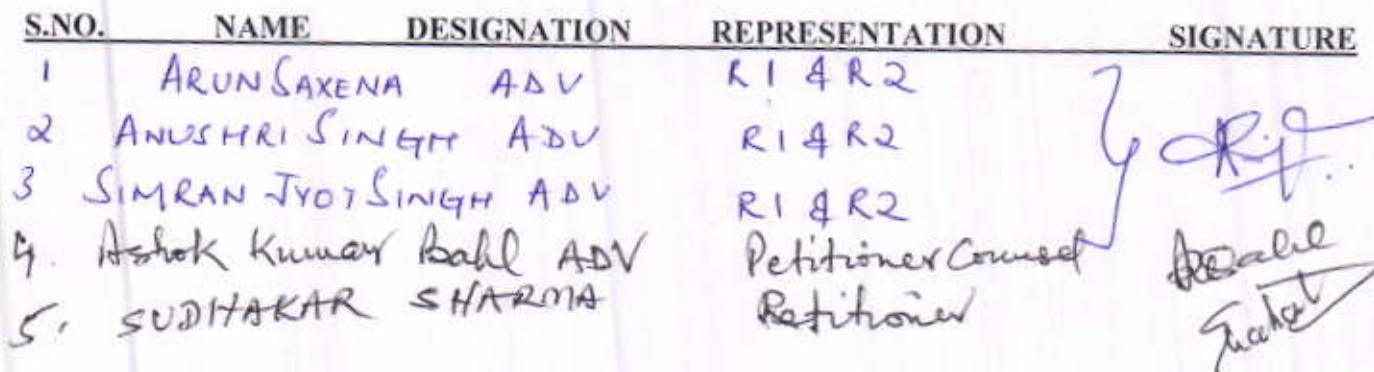 S.NO. NAME DESIGNATION REPRESENTATION SIGNATURE
1 ARUN SAXENA ADV R1 & R2
2 ANUSHRI SINGH ADV R1 & R2
3 SIMRAN JYOT SINGH ADV R1 & R2
4. Ashok Kumar Bahl ADV Petitioner Counsel
5. SUDHAKAR SHARMA Petitioner